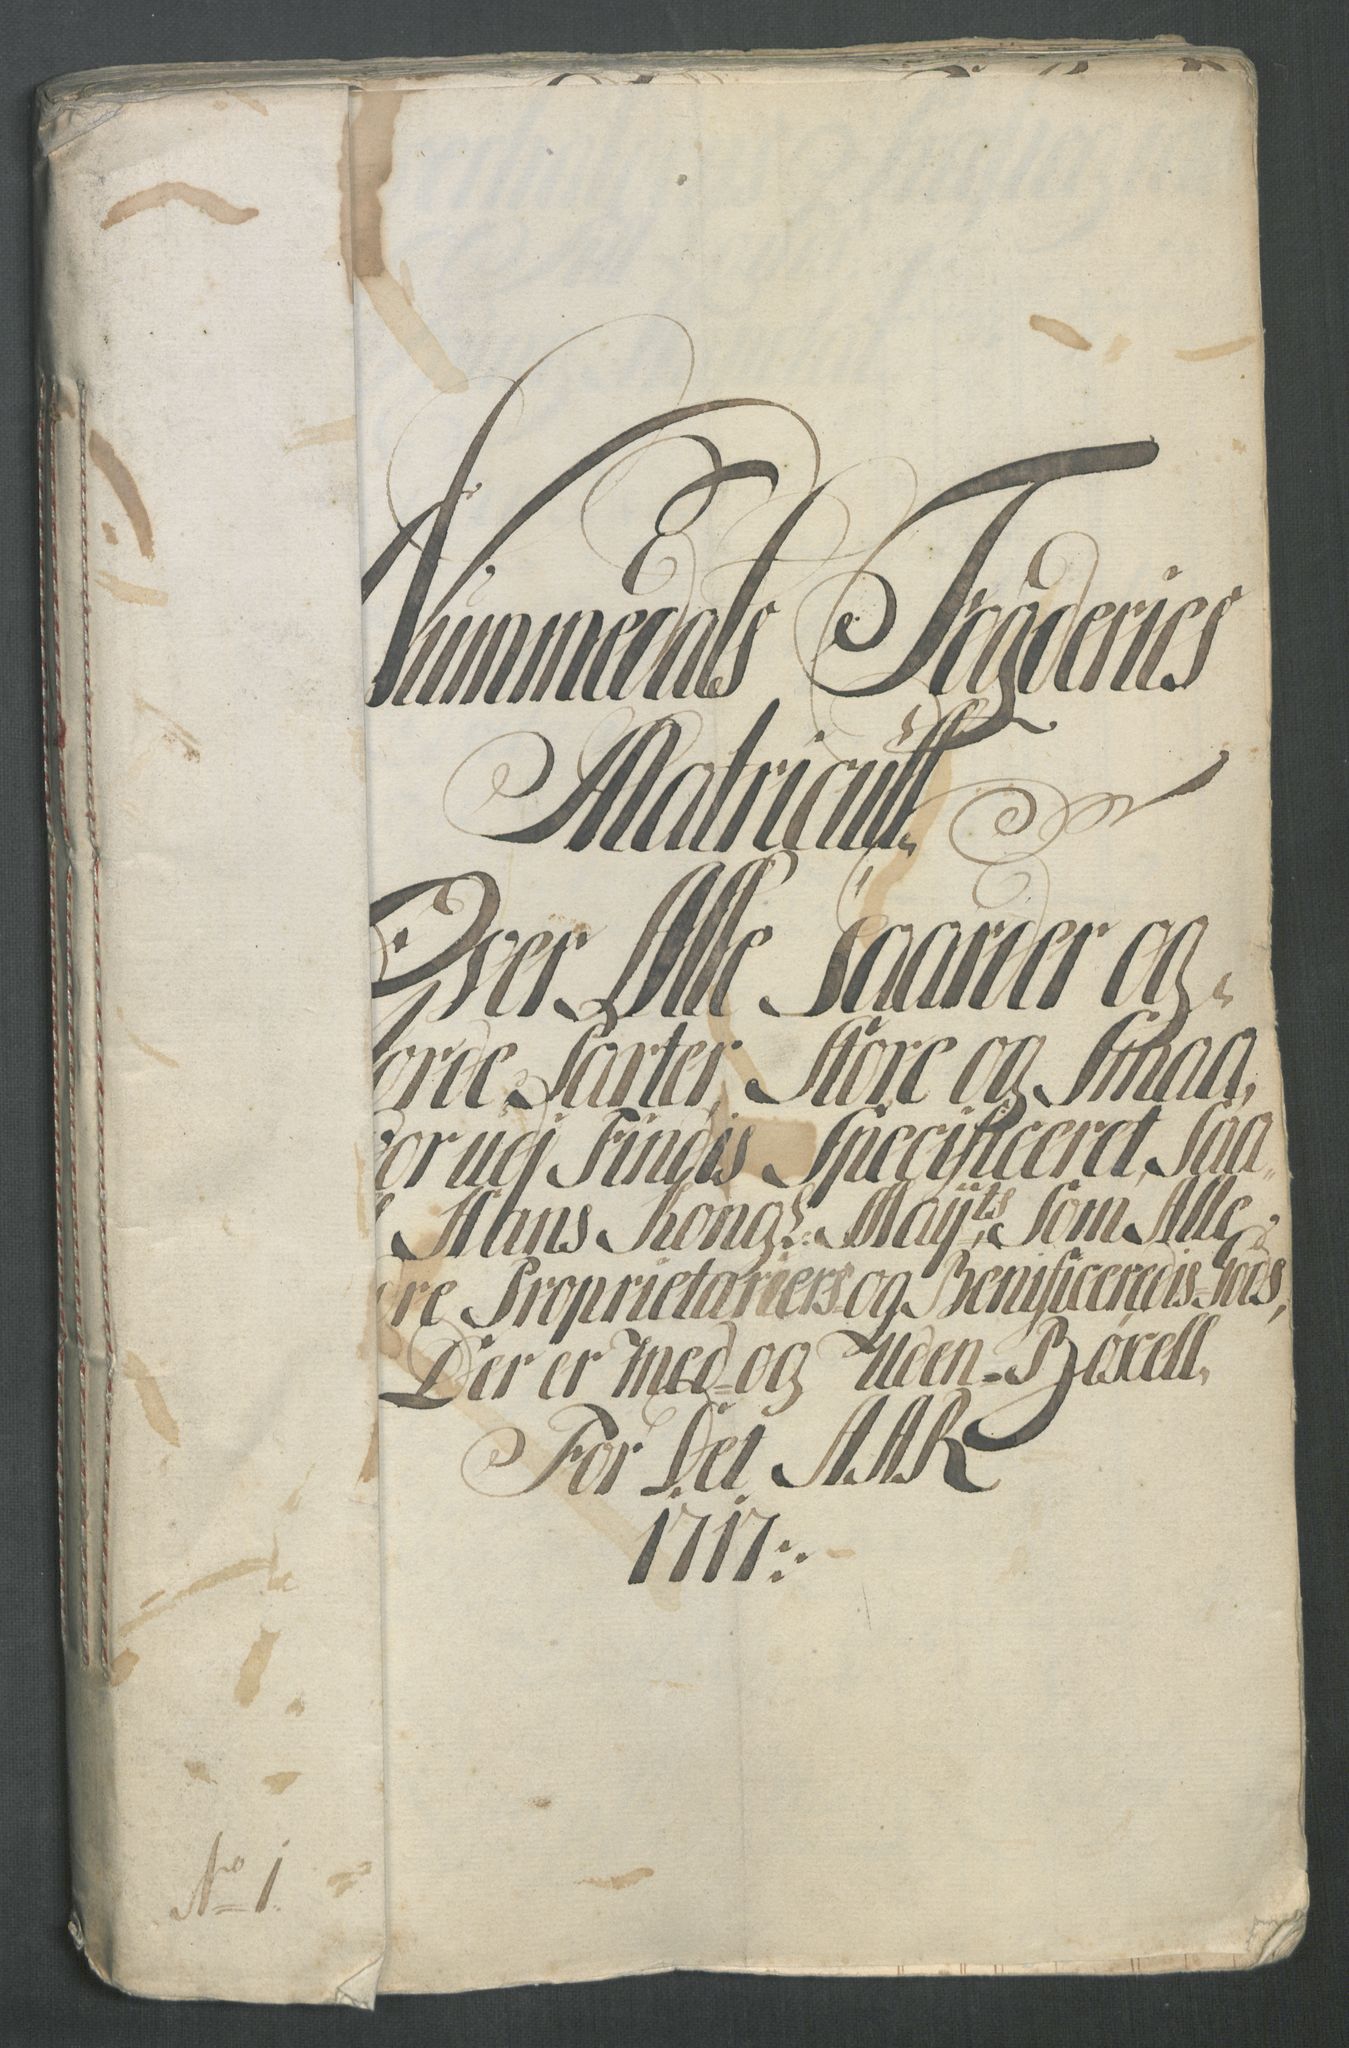 Nummedals Fogderies
Matricull
Over Alle Gaarder og
orde Parter, Store og Smaa,
vorudj Findis Specificeret, Saa-
Hans Kongs: Mayts, Som Alle
dre Proprietariers og Benificeredis Gods,
Der er med og Uden Bøxell,
For Det AAR
1717:
No 1.